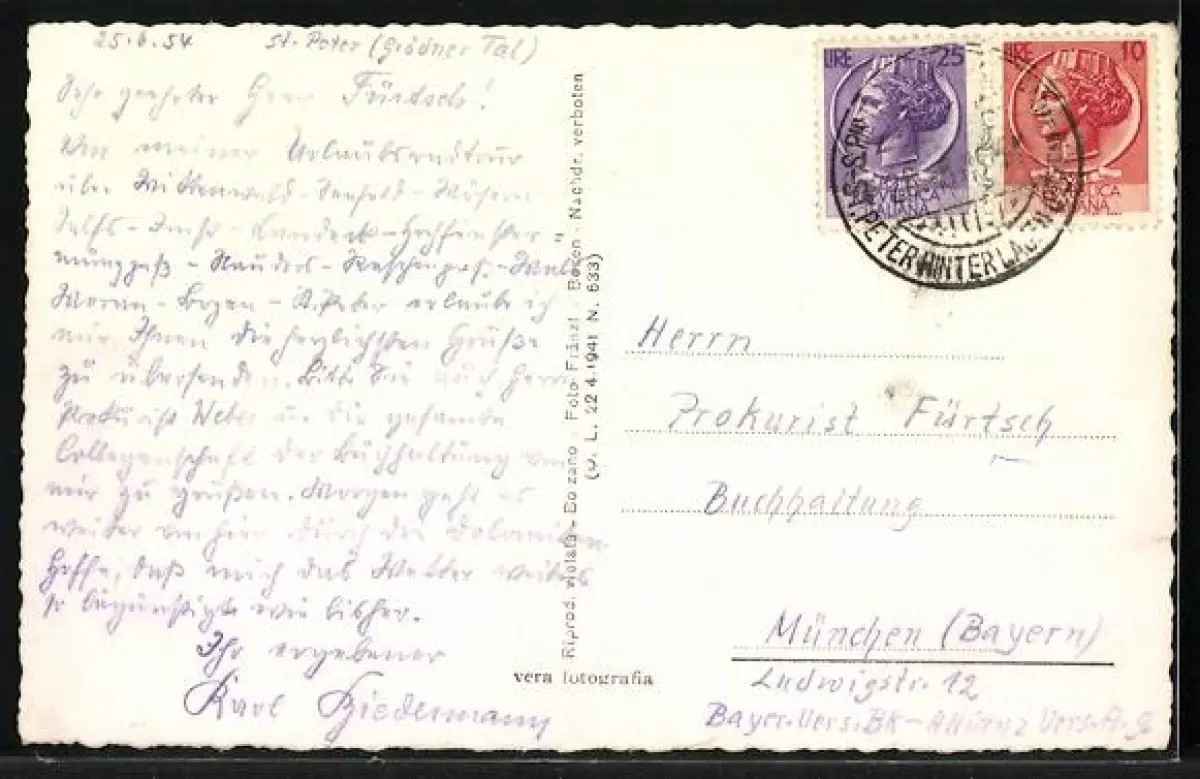 25.6.54 St. Peter (Grödner Tal)
Sehr geehrter Herr Fürtsch!
Von meiner Urlaubsradtour
über Mittenwald-Seefeld-
Telfs-Imst-Landeck-
Nauders-Reschenpass-
Meran-Bozen-St. Peter erlaube ich
mir Ihnen die herzlichsten Grüße
zu übersenden. Bitte Sie auch Herrn
Prokurist Weber u. die gesamte
Collegenschaft der Buchhaltung von
mir zu grüßen. Morgen geht es
weiter von hier durch die Dolomiten
Hoffe, daß mich das Wetter weiters
so begünstigt wie bisher.
Ihr ergebener
Karl Biedermann
Riprod. vietata - Bolzano "Foto Fränzl" Bozen - Nachdr. verboten
(D. L. 22.4.1941 N. 633)
vera fotografia
LIRE 25
LIRE 10
PETER HINTER LAJEN
Herrn
Prokurist Fürtsch
Buchhaltung
München (Bayern)
Ludwigstr. 12
Bayer. Vers. BK - Allianz Vers. A.G.